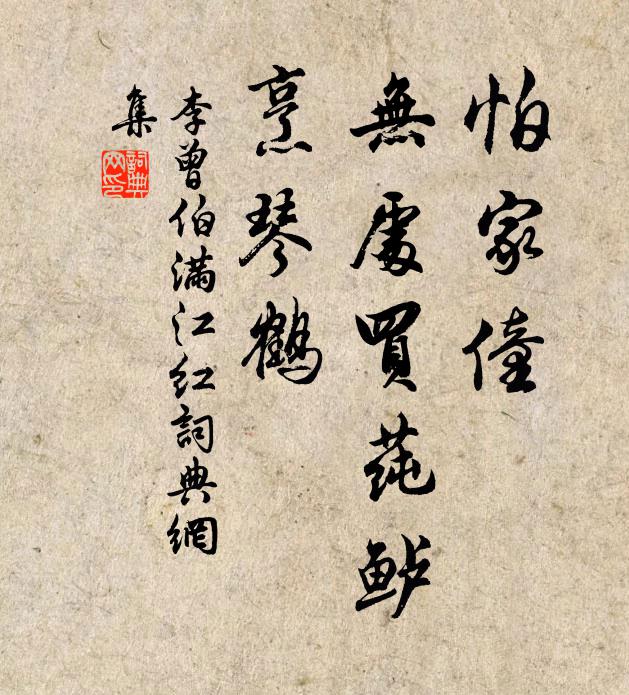 怕家僮
無處買蒓鲈
烹琴鶴
李曾伯滿江红詞典網
集
詞典
网印